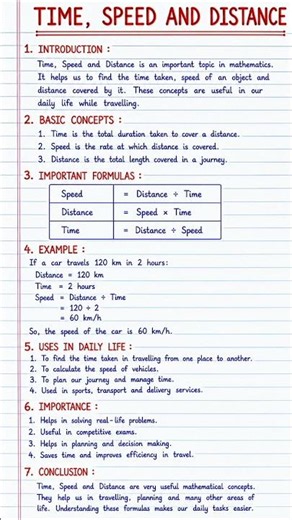 TIME, SPEED AND DISTANCE
1. INTRODUCTION :
Time, Speed and Distance is an important topic in mathematics.
It helps us to find the time taken, speed of an object and
distance covered by it. These concepts are useful in our
daily life while travelling.
2. BASIC CONCEPTS :
1. Time is the total duration taken to cover a distance.
2. Speed is the rate at which distance is covered.
3. Distance is the total length covered in a journey.
3. IMPORTANT FORMULAS :
Speed = Distance ÷ Time
Distance = Speed × Time
Time = Distance ÷ Speed
4. EXAMPLE :
If a car travels 120 km in 2 hours:
Distance = 120 km
Time = 2 hours
Speed = Distance ÷ Time
= 120 ÷ 2
= 60 km/h
So, the speed of the car is 60 km/h.
5. USES IN DAILY LIFE :
1. To find the time taken in travelling from one place to another.
2. To calculate the speed of vehicles.
3. To plan our journey and manage time.
4. Used in sports, transport and delivery services.
6. IMPORTANCE :
1. Helps in solving real-life problems.
2. Useful in competitive exams.
3. Helps in planning and decision making.
4. Saves time and improves efficiency in travel.
7. CONCLUSION :
Time, Speed and Distance are very useful mathematical concepts.
They help us in travelling, planning and many other areas
of life. Understanding these formulas makes our daily tasks easier.